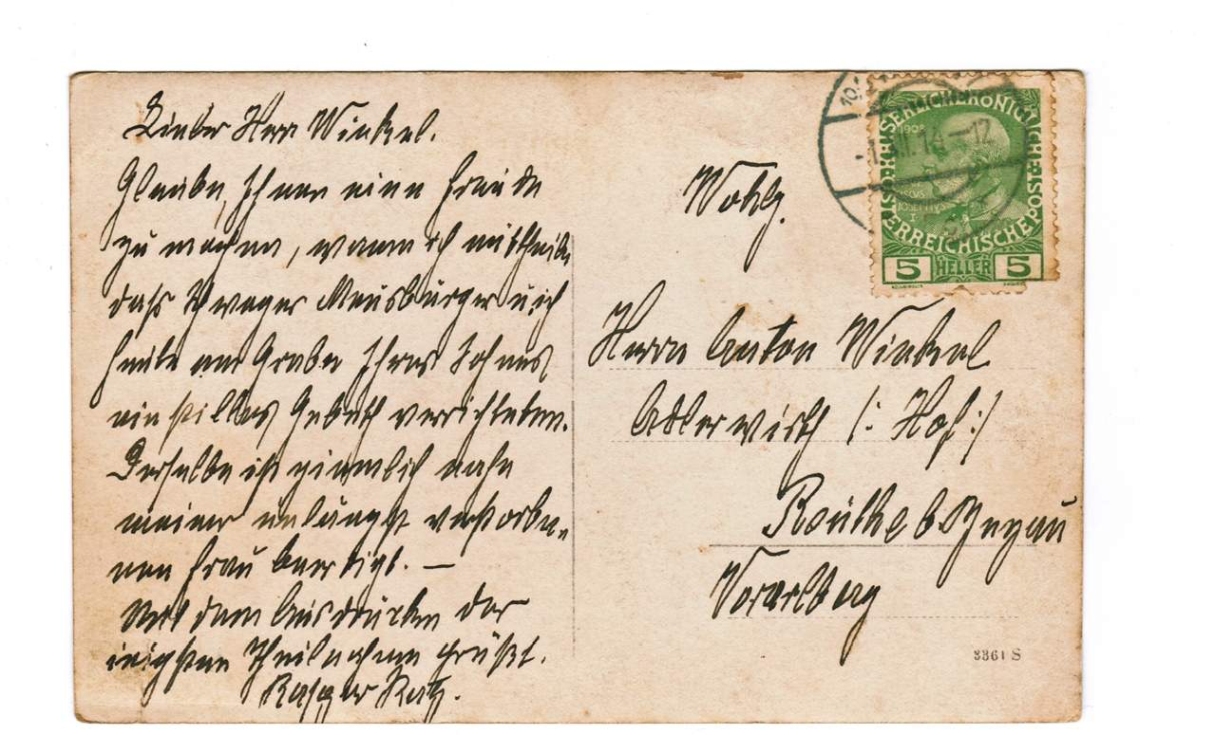 Lieber Herr Winkel.
Glaube, Ihnen eine Freude
zu machen, wenn ich mittheile
daß Schwager Meusburger u. ich
heute am Grabe Ihres Sohnes
ein stilles Gebeth verrichteten.
Derselbe ist ziemlich nahe
meiner unlängst verstorbe-
nen Frau beerdigt. —
Mit dem Ausdrucke der
innigsten Theilnahme grüßt.
Kaspar Ratz.
Wohlg.
Herrn Anton Winkel
Adlerwirth (: Hof :)
Reuthe b Bezau
Vorarlberg
KAISERLICHE KÖNIGLICHE
ÖSTERREICHISCHE POST
1908
5 HELLER 5
12
3361 S